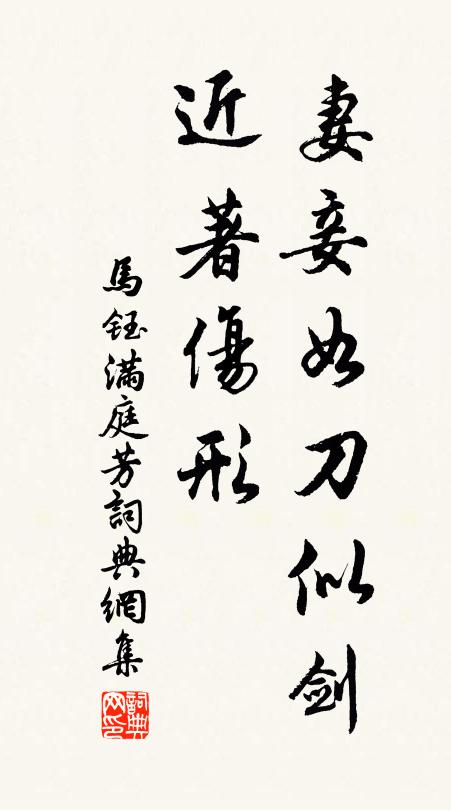 妻妾如刀似剑
近著傷形
馬鈺滿庭芳詞典網集
詞典网印